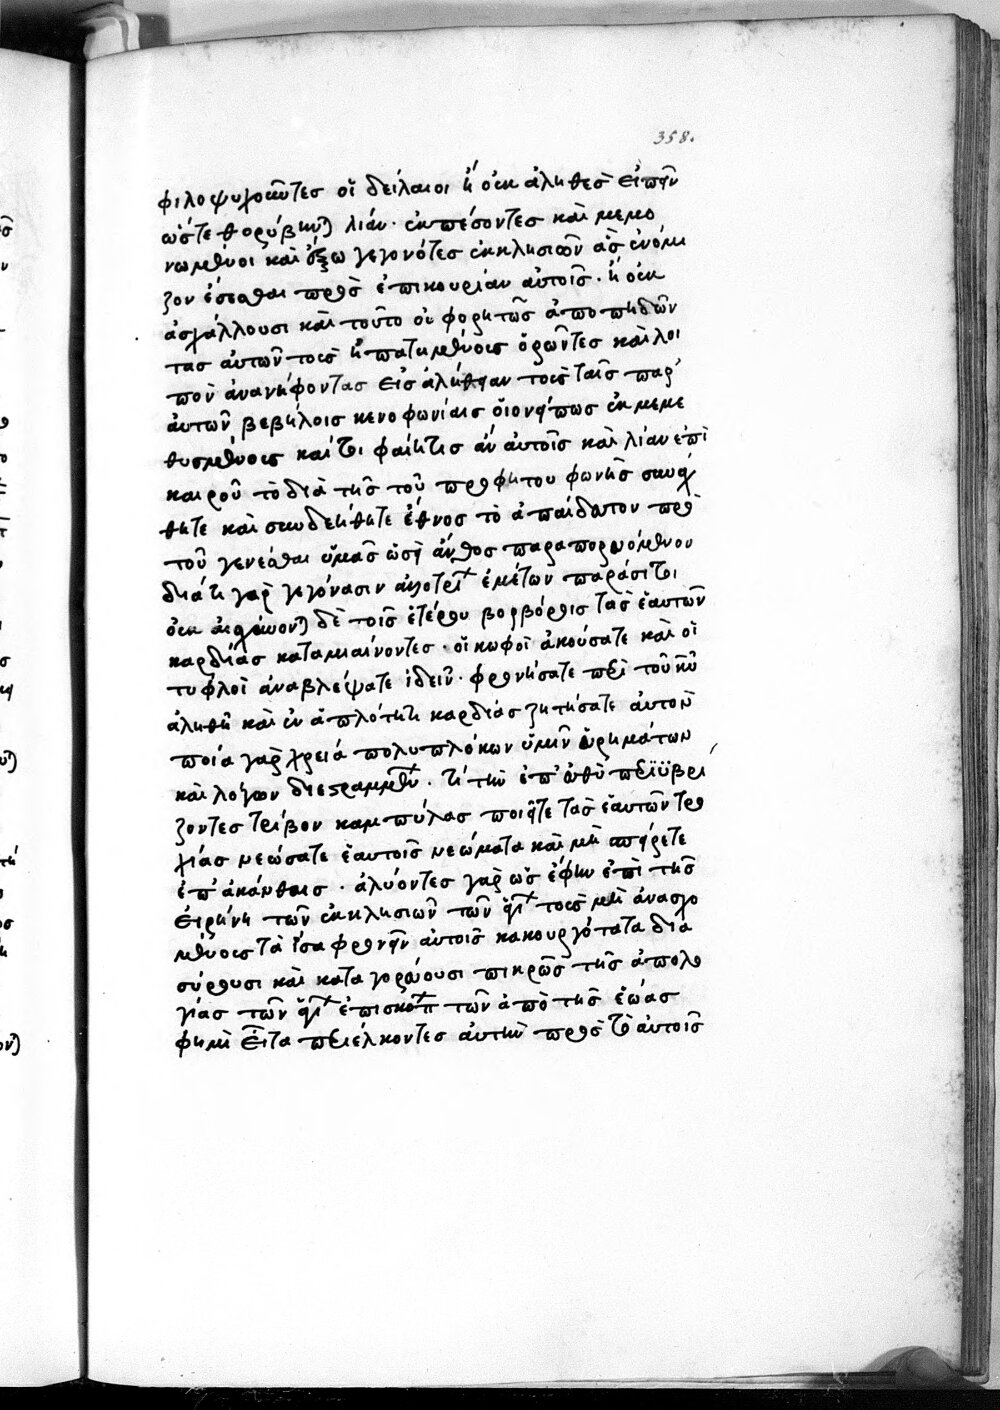 358.
φιλοψυχοῦντες οἱ δείλαιοι ἢ οὐκ ἀληθὲς εἰπεῖν
ὥστε θορύβην) λίαν· ἐκπέσοντες καὶ μεμο
νωμένοι καὶ ἔξω γεγονότες ἐκκλησιῶν ἃς ἐνόμι
ζον ἔσεσθαι πρὸς ἐπικουρίαν αὐτοῖς· ἢ οὐκ
ἀσχάλλουσι καὶ τοῦτο οὐ φορητῶς ἀποπηδῶν
τας αὐτῶν τοὺς ἠπατημένους ὁρῶντες καὶ λοι
πὸν ἀνανήφοντας εἰς ἀλήθειαν τοὺς ταῖς παρ'
αὐτῶν βεβήλοις κενοφωνίαις οἱονείπως ἐκμεμε
θυσμένους καίτοι φαίη τις ἂν αὐτοῖς καὶ λίαν ἐπὶ
καιροῦ τὸ διὰ τῆς τοῦ προφήτου φωνῆς συνάχ
θητε καὶ συνδεήθητε ἔθνος τὸ ἀπαίδευτον πρὸ
τοῦ γενέσθαι ὑμᾶς ὡσεὶ ἄνθος παραπορευόμενον
διατι γὰρ γεγόνασιν ἀλλοτρί ἐμέτων παράσιτοι
οὐκ αἰσχύνον) δὲ τοῖς ἑτέρου βορβόροις τὰς ἑαυτῶν
καρδίας καταμιαίνοντες· οἱ κωφοὶ ἀκούσατε καὶ οἱ
τυφλοὶ ἀναβλέψατε ἰδεῖν· φρονήσατε περὶ τοῦ κυ
ἀληθῆ καὶ ἐν ἁπλότητι καρδίας ζητήσατε αὐτὸν
ποία γὰρ χρειά πολυπλόκων ὑμῖν εὑρημάτων
καὶ λόγων διεστραμμέν· τί τὴν ἐπ' εὐθὺ περιϋβρι
ζοντες τρίβον καμπύλας ποιεῖτε τὰς ἑαυτῶν τρο
χιάς νεώσατε ἑαυτοῖς νεώματα καὶ μὴ σπείρετε
ἐπ' ἀκάνθαις· ἀλύοντες γὰρ ὡς ἔφην ἐπὶ τῆς
εἰρήνη τῶν ἐκκλησιῶν τῶν ἁγί τοὺς μὴ ἀνασχο
μένους τὰ ἴσα φρονεῖν αὐτοῖς κακουργότατα δια
σύρουσι καὶ καταγορεύουσι πικρῶς τῆς ἀπολο
γίας τῶν ἁγί ἐπισκόπ τῶν ἀπὸ τῆς ἑώας
φημὶ εἶτα περιέλκοντες αὐτὴν πρὸς τὸ αὐτοῖς